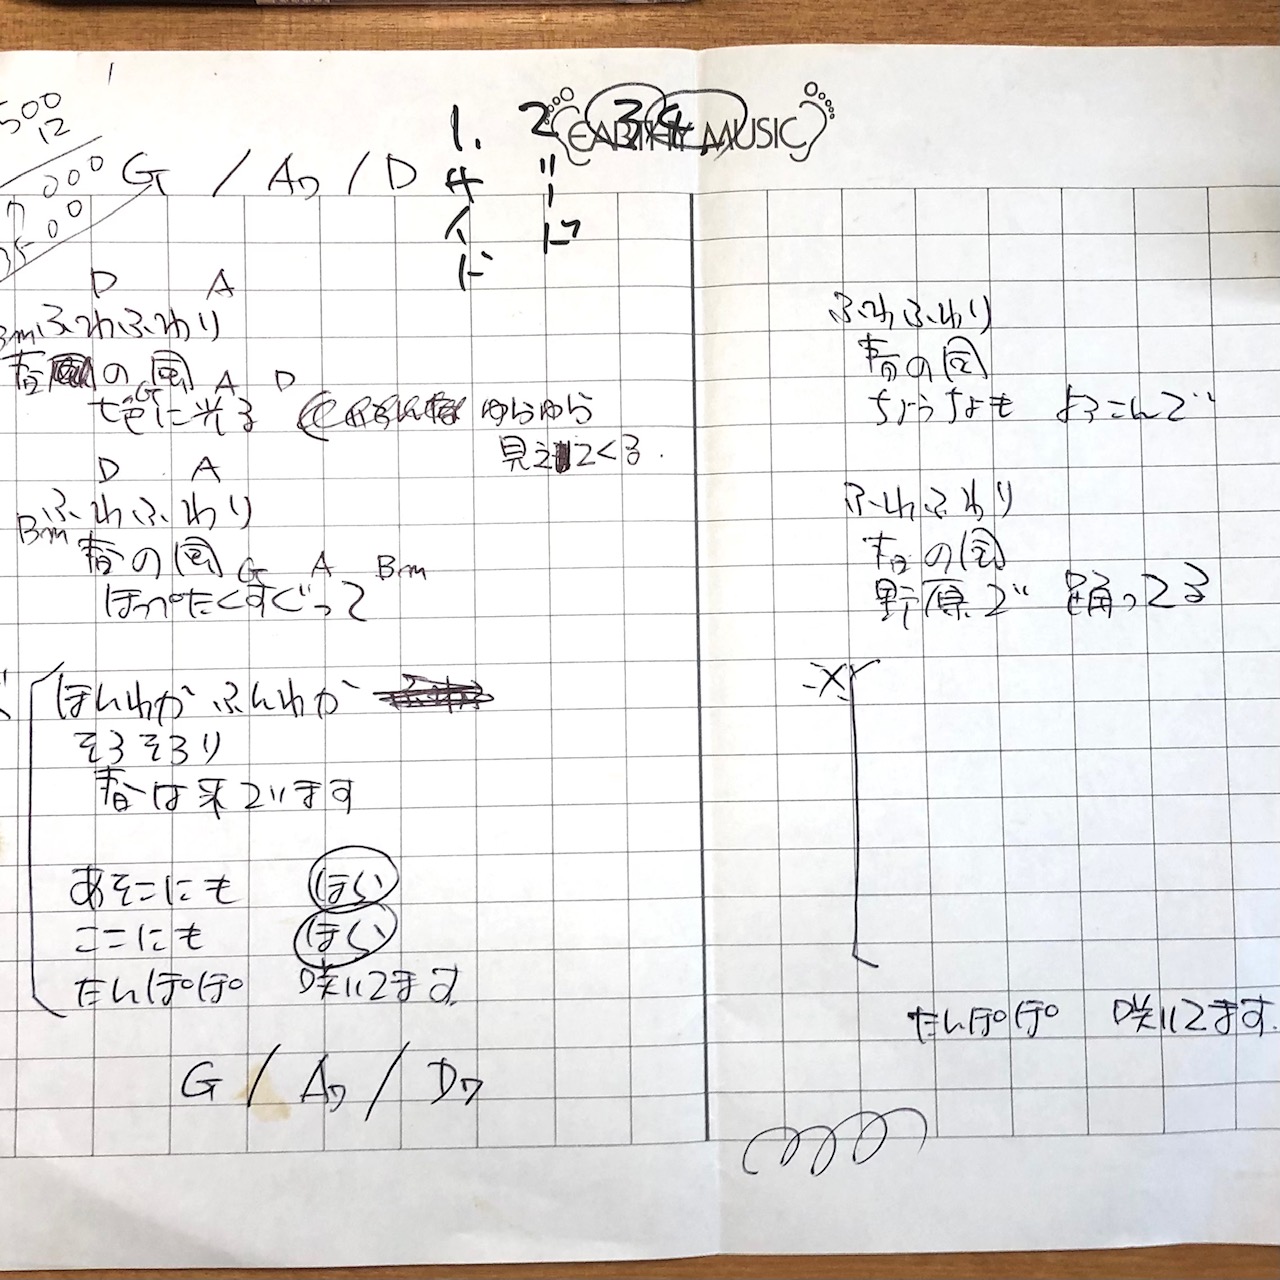 500
12
000
00
3500
G / A7 / D
1. 2 3 4
サイド
リード
EARTHY MUSIC
D A
Bm ふわふわり
春の風
G A D
七色に光る ゆらゆら
見えてくる.
D A
ふわふわり
Bm 春の風
G A Bm
ほっぺたくすぐって
ほんわか ふんわか
そろそろり
春は来ています
あそこにも ほい
ここにも ほい
たんぽぽ 咲いてます
G / A7 / D7
ふわふわり
春の風
ちょうちょも よろこんで
ふわふわり
春の風
野原で 踊ってる
※
たんぽぽ 咲いてます.